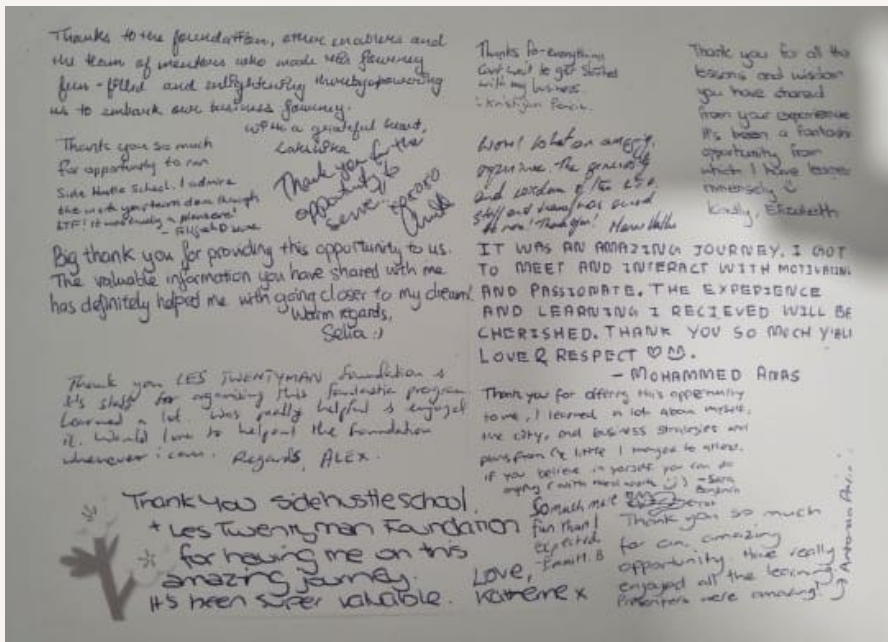 Thanks to the foundation, other enablers and
the team of mentors who made this journey
fun-filled and enlightening thereby empowering
us to embark our business journey.
with a grateful heart,
Thank you so much
for opportunity to run
Side Hustle School. I admire
the work your team does through
LTF! It was truly a pleasure!
Thank you for the
opportunity to
serve!!
Big thank you for providing this opportunity to us.
The valuable information you have shared with me
has definitely helped me with going closer to my dream!
Warm regards,
Selia :)
Thank you LES TWENTYMAN foundation &
it's staff for organising this fantastic program
Learned a lot. Was really helpful & enjoyed
it. Would love to help out the foundation
whenever i can. Regards, ALEX.
Thank you sidehustleschool
+ Les Twentyman Foundation
for having me on this
amazing journey.
It's been super valuable.
Love,
Katherine x
Thanks for everything
Cant wait to get started
with my business.
Wow! What an amazing
experience. The generosity
and wisdom of the
staff and
Thank you!
Thank you for all the
lessons and wisdom
you have shared
from your experience
It's been a fantastic
opportunity from
which I have learned
immensely
Kindly, Elizabeth
IT WAS AN AMAZING JOURNEY. I GOT
TO MEET AND INTERACT WITH MOTIVATING
AND PASSIONATE. THE EXPERIENCE
AND LEARNING I RECIEVED WILL BE
CHERISHED. THANK YOU SO MUCH Y'ALL
LOVE & RESPECT ♡
- MOHAMMED ANAS
Thank you for offering this opportunity
to me, I learned a lot about myself,
the city, and business strategies and
plans from the little I managed to attend.
if you believe in yourself you can do
anything (with hard work :) - Sara
Benjamin
So much more
fun than I
expected
- Emma H. B
Thank you so much
for an amazing
opportunity. Have really
enjoyed all the learning.
Presenters were amazing!